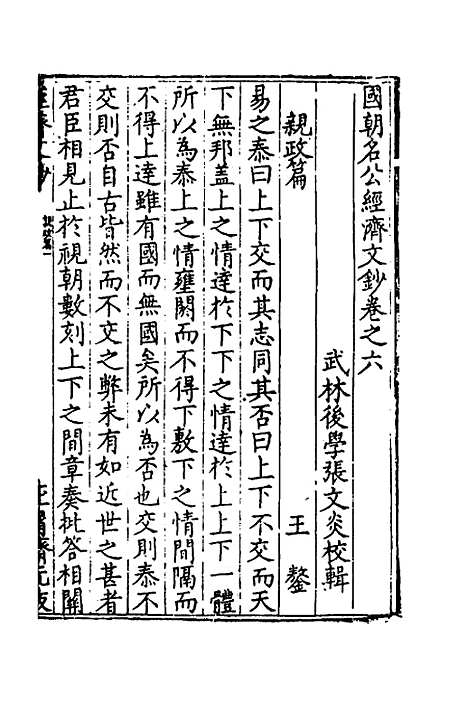 國朝名公經濟文鈔卷之六
武林後學張文炎校輯
親政篇
王鏊
易之泰曰上下交而其志同其否曰上下不交而天
下無邦盖上之情達於下下之情達於上上下一體
所以為泰上之情壅閼而不得下敷下之情間隔而
不得上達雖有國而無國矣所以為否也交則泰不
交則否自古皆然而不交之弊未有如近世之甚者
君臣相見止於視朝數刻上下之間章奏批答相關